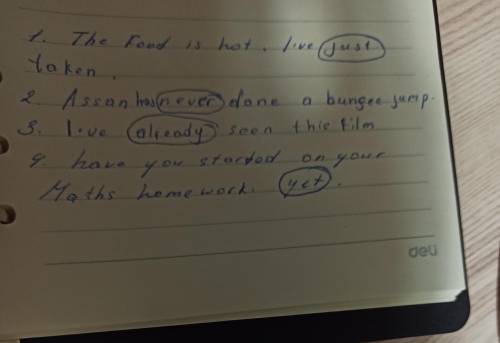 1. The Food is hot. I.ve just
taken.
2. Assan has never done a bungee jump.
3. I.ve already seen this film
4. have you started on your
Maths homework. yet.
deli